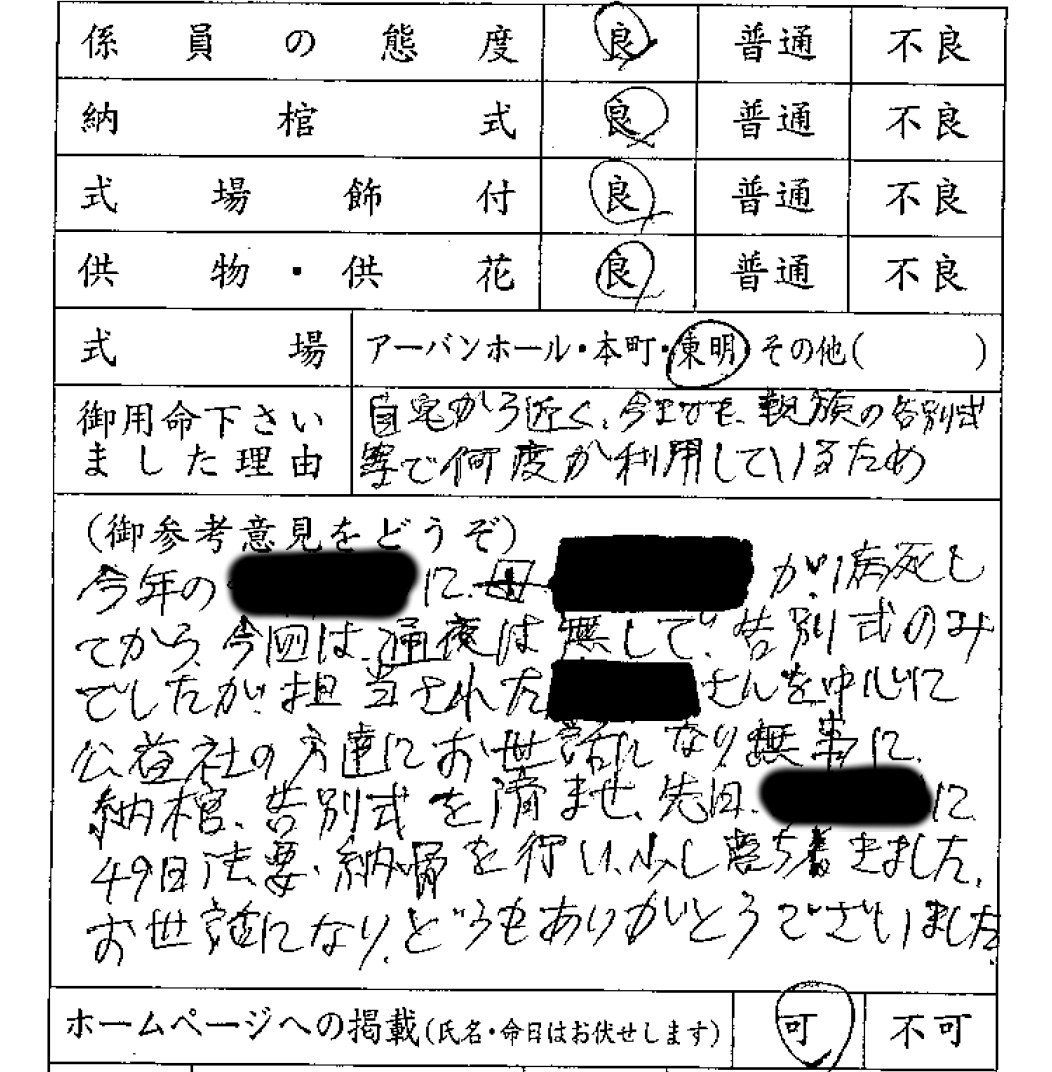 係員の態度 良 普通 不良
納棺式 良 普通 不良
式場飾付 良 普通 不良
供物・供花 良 普通 不良
式場 アーバンホール・本町・東明 その他( )
御用命下さいました理由
自宅から近く、今までも、親族の告別式
等で何度か利用しているため
(御参考意見をどうぞ)
今年の に、母 が、病死し
てから、今回は、通夜は無しで、告別式のみ
でしたが、担当された さんを中心に
公益社の方達にお世話になり無事に、
納棺、告別式を済ませ、先日、 に、
49日法要・納骨を行い、少し落ち着きました。
お世話になり、どうもありがとうございました。
ホームページへの掲載(氏名・命日はお伏せします) 可 不可